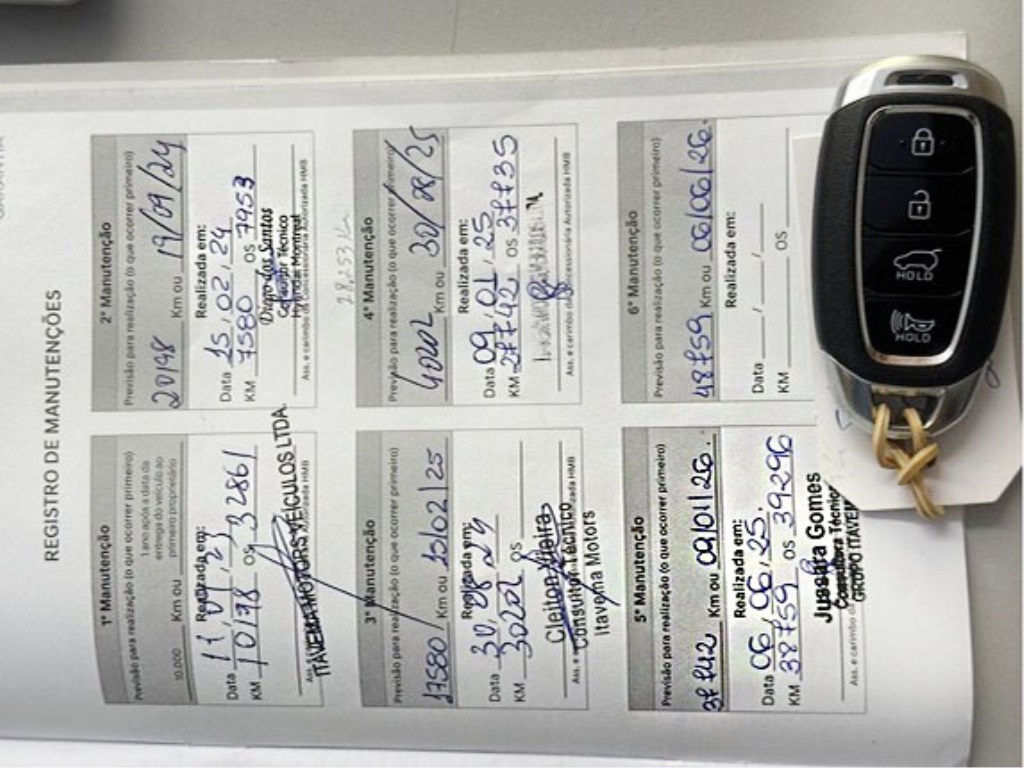 REGISTRO DE MANUTENÇÕES
1ª Manutenção
Previsão para realização (o que ocorrer primeiro)
10.000 Km ou 1 ano após a data da
entrega do veículo ao
primeiro proprietário
Realizada em:
Data 23
KM 10178 OS 32861
ITAVEMA MOTORS VEÍCULOS LTDA.
2ª Manutenção
Previsão para realização (o que ocorrer primeiro)
20198 Km ou 19/09/24
Realizada em:
Data 15,02,24
KM 7580 OS 7953
Diogo dos Santos
Consultor Técnico
Hyundai Montreal
Ass. e carimbo da Concessionária Autorizada HMB
3ª Manutenção
Previsão para realização (o que ocorrer primeiro)
17580 Km ou 15/02/25
Realizada em:
Data 30,08,24
KM 30202 OS
Cleiton Vieira
Consultor Técnico
Itavema Motors
28.253 K
4ª Manutenção
Previsão para realização (o que ocorrer primeiro)
40202 Km ou 30/08/25
Realizada em:
Data 09,01,25
KM 27742 OS 37735
Ass. e carimbo da Concessionária Autorizada HMB
5ª Manutenção
Previsão para realização (o que ocorrer primeiro)
37742 Km ou 09/01/26.
Realizada em:
Data 06,06,25.
KM 38759 OS 39296
Jussara Gomes
Consultora Técnica
GRUPO ITAVEMA
6ª Manutenção
Previsão para realização (o que ocorrer primeiro)
48759 Km ou 06/06/26.
Realizada em:
Data / /
KM OS
HOLD
HOLD